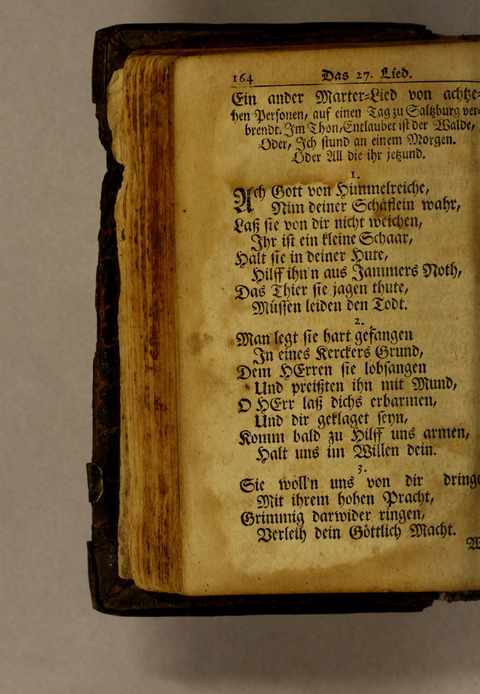 164 Das 27. Lied.
Ein ander Marter-Lied von achtze-
hen Personen, auf einen Tag zu Saltzburg ver-
brendt. Im Thon, Entlaubet ist der Walde,
Oder, Ich stund an einem Morgen.
Oder All die ihr jetzund.
1.
Ach Gott von Himmelreiche,
Nim deiner Schäflein wahr,
Laß sie von dir nicht weichen,
Ihr ist ein kleine Schaar,
Halt sie in deiner Hute,
Hilff ihn'n aus Jammers Noth,
Das Thier sie jagen thute,
Müssen leiden den Todt.
2.
Man legt sie hart gefangen
In eines Kerckers Grund,
Dem HErren sie lobsangen
Und preißten ihn mit Mund,
O HErr laß dichs erbarmen,
Und dir geklaget seyn,
Komm bald zu Hilff uns armen,
Halt uns im Willen dein.
3.
Sie wöll'n uns von dir dringe
Mit ihrem hohen Pracht,
Grimmig darwider ringen,
Verleih dein Göttlich Macht.